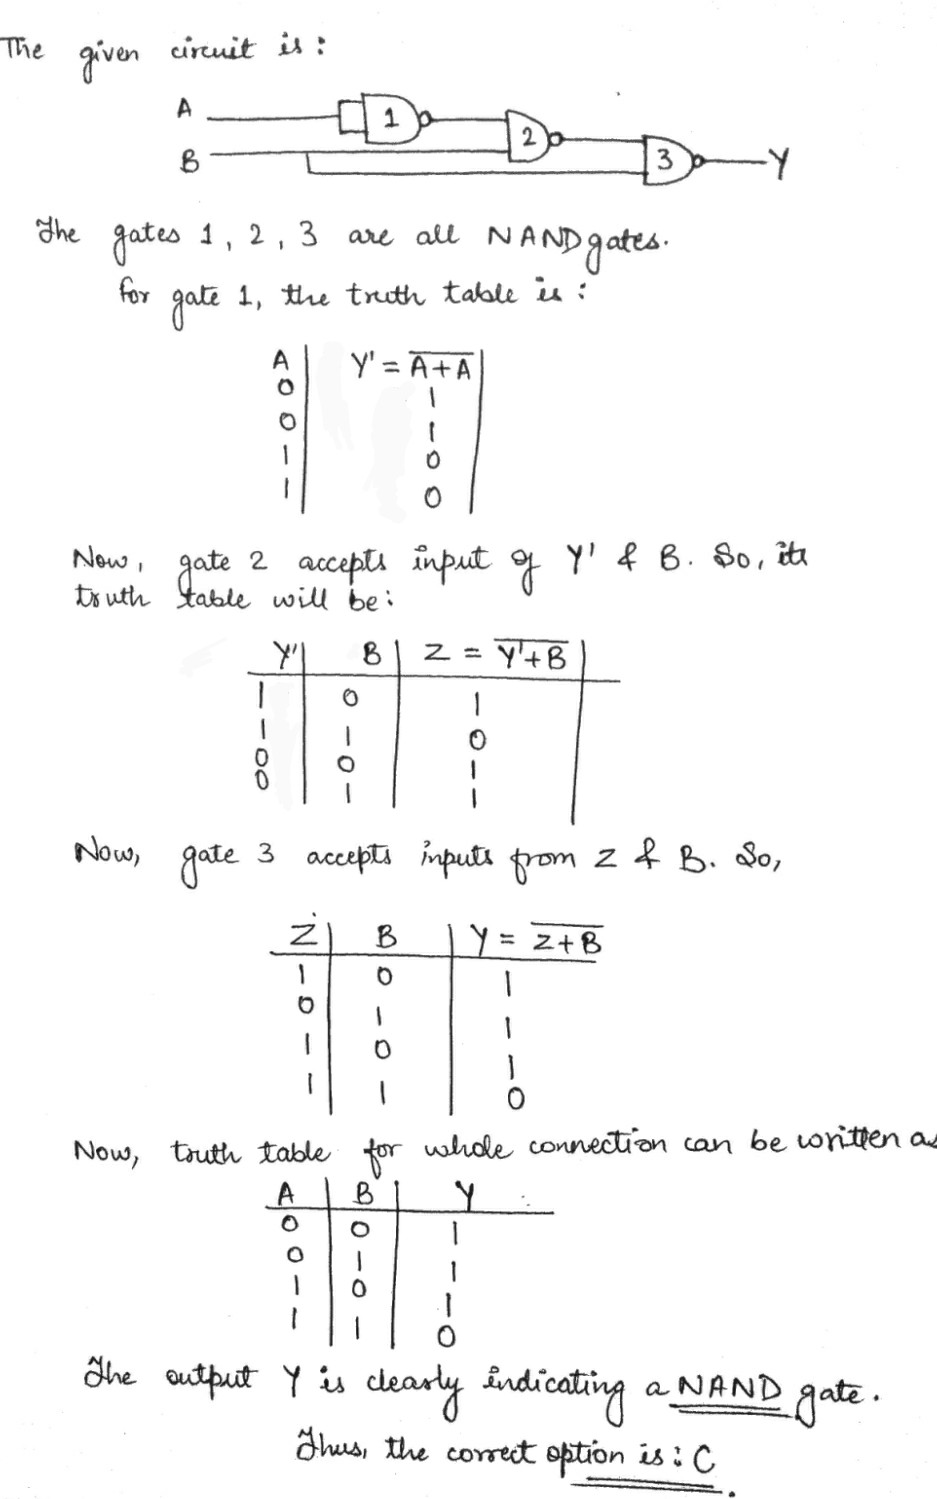 The given circuit is :
A
1
2
B
3
Y
The gates 1, 2, 3 are all NAND gates.
for gate 1, the truth table is :
A Y' = \overline{A+A}
0 1
0 1
1 0
1 0
Now, gate 2 accepts input of Y' & B. So, its
truth table will be:
Y' B Z = \overline{Y'+B}
1 0 1
1 1 0
0 0 1
0 1 1
Now, gate 3 accepts inputs from Z & B. So,
Z B Y = \overline{Z+B}
1 0 1
0 1 1
1 0 1
1 1 0
Now, truth table for whole connection can be written as
A B Y
0 0 1
0 1 1
1 0 1
1 1 0
The output Y is clearly indicating a NAND gate.
Thus, the correct option is : C.